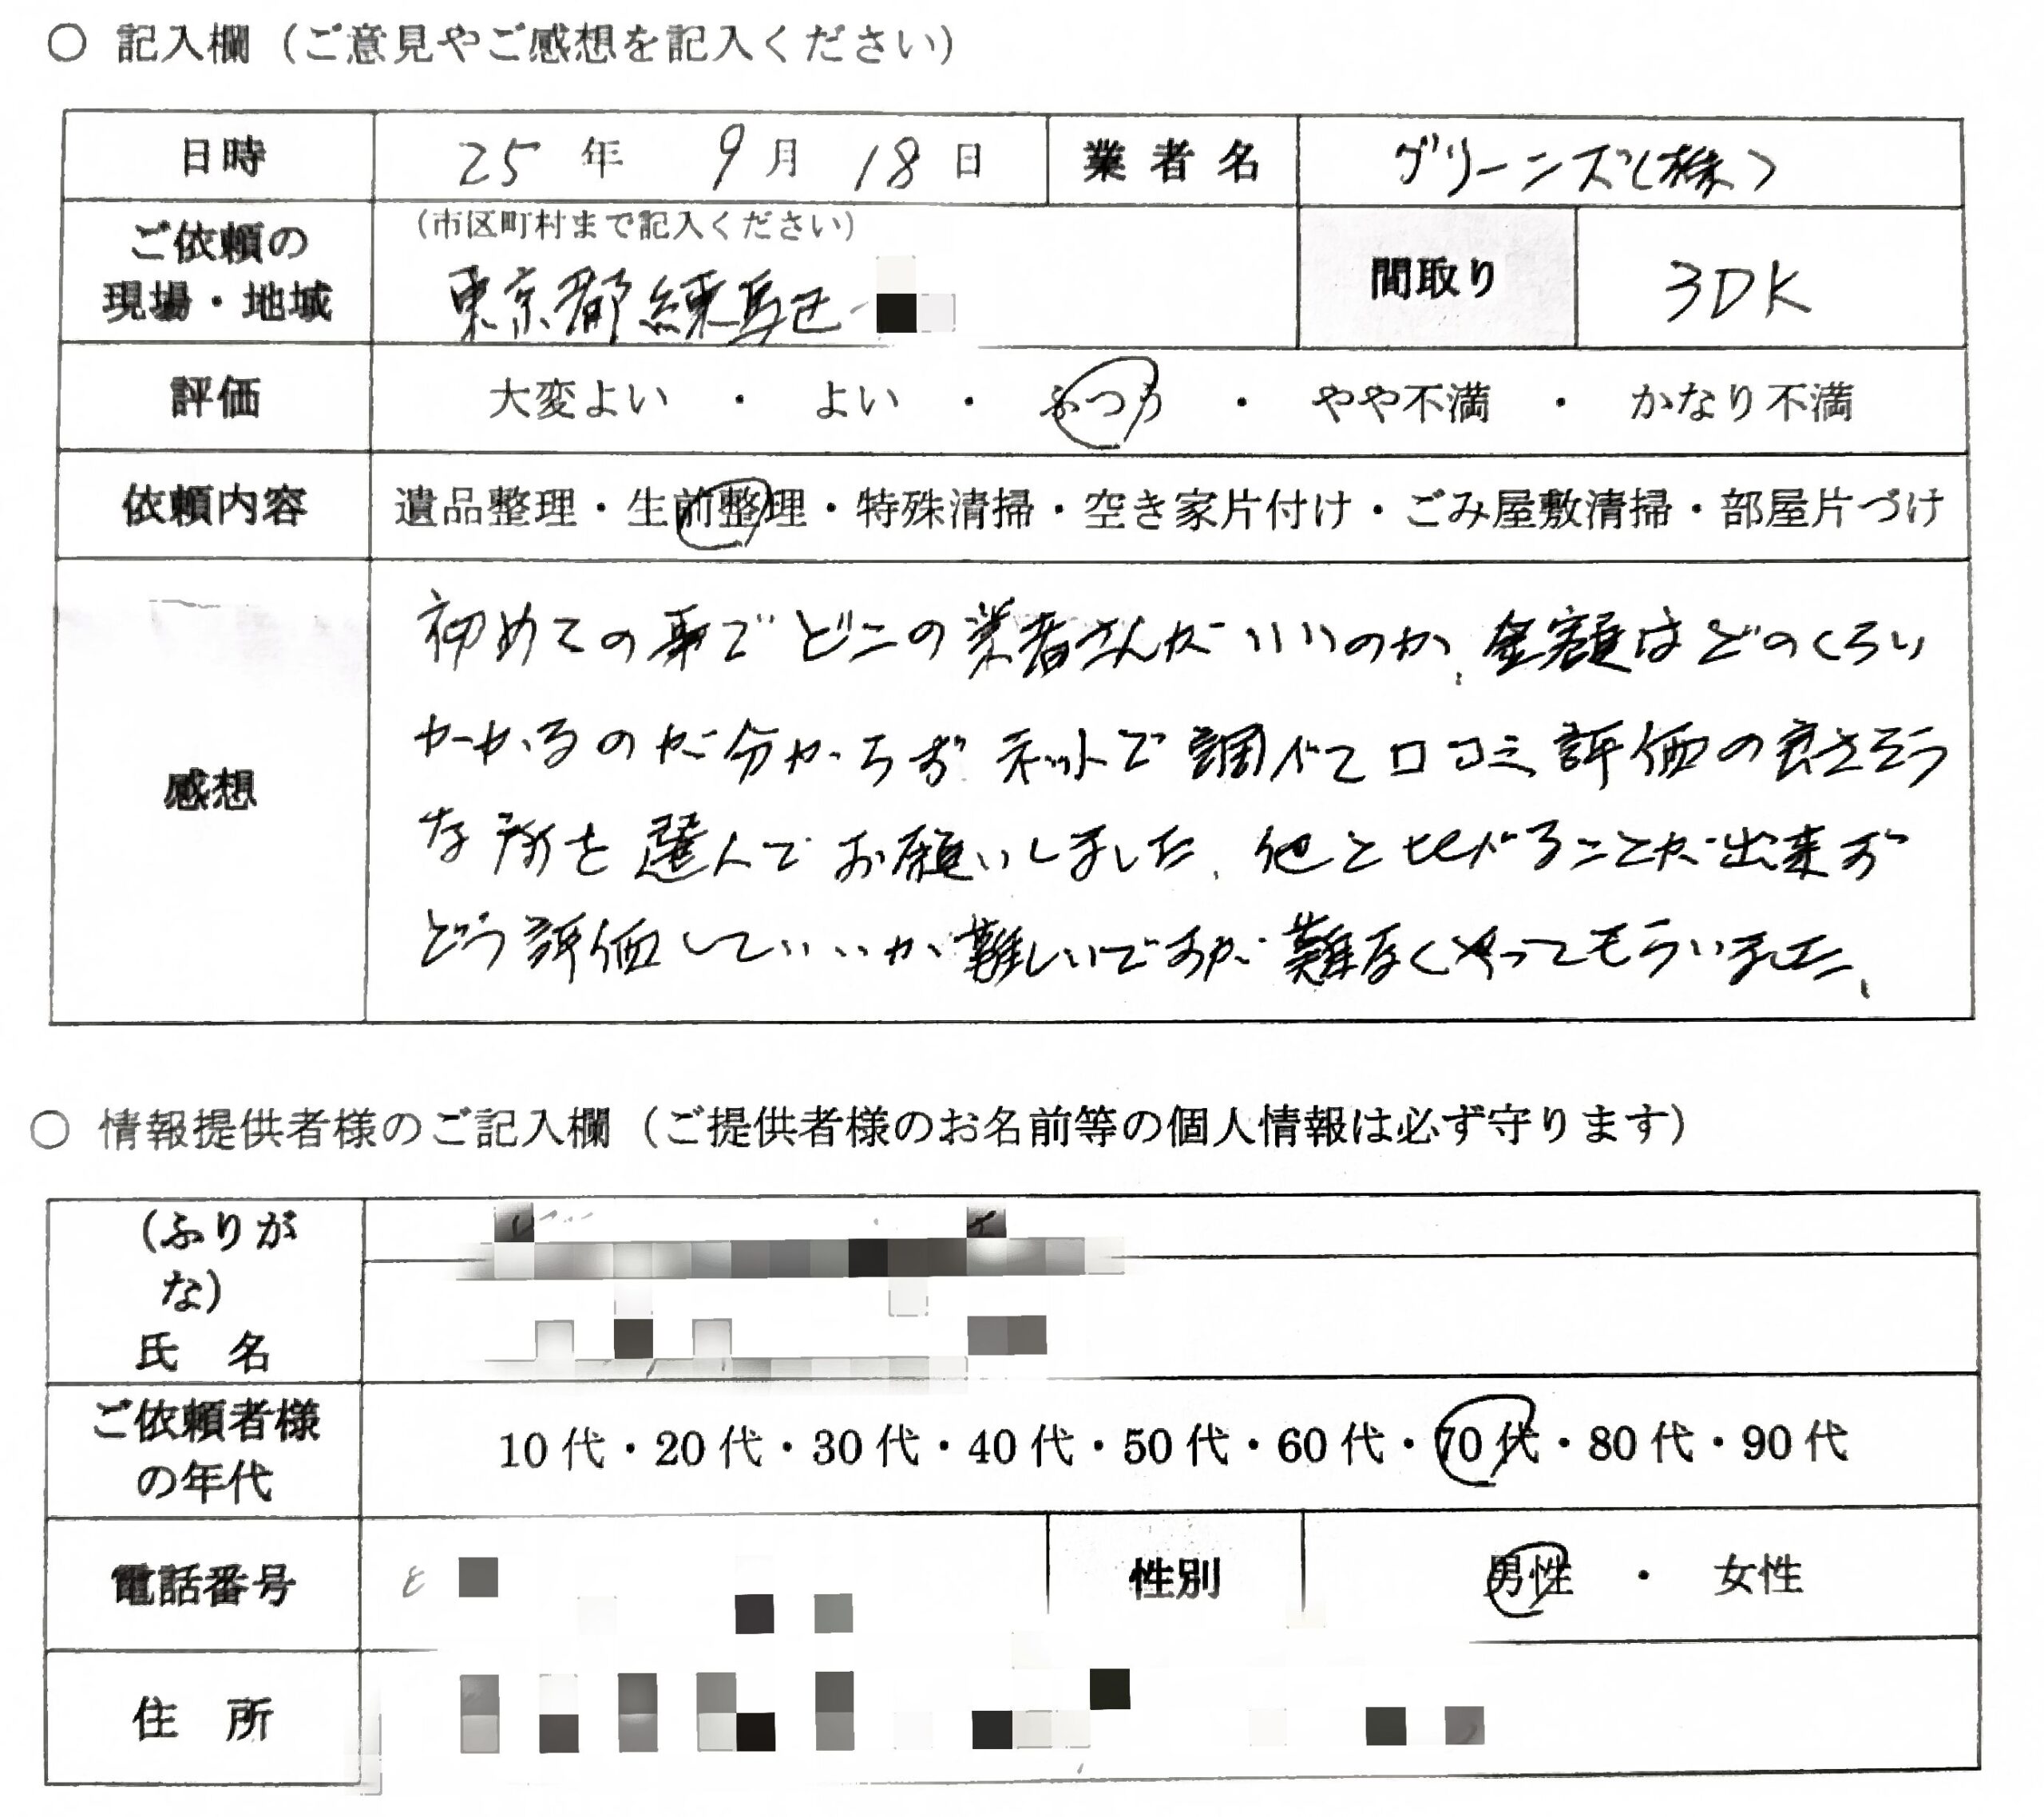 ○ 記入欄（ご意見やご感想を記入ください）
日時 25年 9月 18日 業者名 グリーンズ(株)
ご依頼の現場・地域 （市区町村まで記入ください） 間取り 3DK
東京都練馬区
評価 大変よい ・ よい ・ ふつう ・ やや不満 ・ かなり不満
依頼内容 遺品整理・生前整理・特殊清掃・空き家片付け・ごみ屋敷清掃・部屋片づけ
感想
初めての事でどこの業者さんがいいのか、金額はどのくらい
かかるのか分からず ネットで調べて口コミ、評価の良さそう
な所を選んでお願いしました、他と比べることが出来ず
どう評価していいか難しいですが難なくやってもらいました、
○ 情報提供者様のご記入欄（ご提供者様のお名前等の個人情報は必ず守ります）
（ふりがな）
氏 名
ご依頼者様の年代 10代・20代・30代・40代・50代・60代・70代・80代・90代
電話番号 性別 男性 ・ 女性
住 所